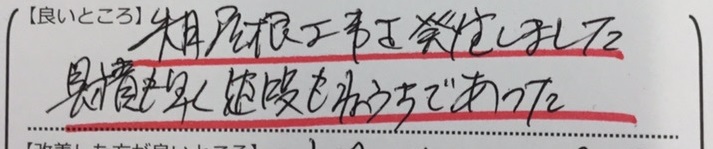 【良いところ】
屋根工事を発注しました
見積も早く値段もねうちであった
【改善した方が良いところ】